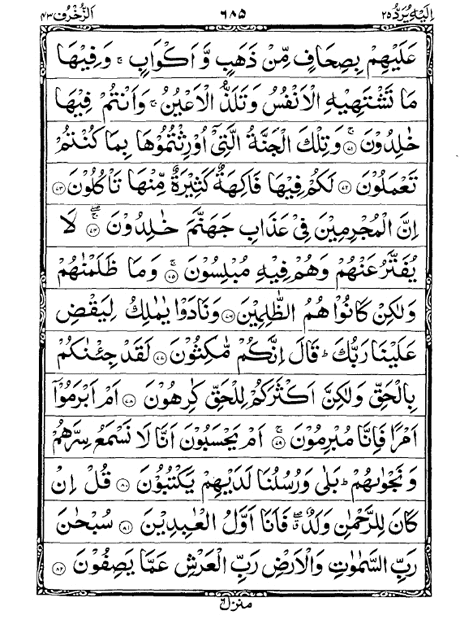 اِلَيْهِ يُرَدُّ ٢٥ ٦٨٥ اَلزُّخْرُف ٤٣
عَلَيْهِمْ بِصِحَافٍ مِّنْ ذَهَبٍ وَّ اَكْوَابٍ ۚ وَفِيْهَا
مَا تَشْتَهِيْهِ الْاَنْفُسُ وَتَلَذُّ الْاَعْيُنُ ۚ وَاَنْتُمْ فِيْهَا
خٰلِدُوْنَ ۚ‏﴿۷۱﴾ وَتِلْكَ الْجَنَّةُ الَّتِىْٓ اُوْرِثْتُمُوْهَا بِمَا كُنْتُمْ
تَعْمَلُوْنَ ﴿۷۲﴾ لَكُمْ فِيْهَا فَاكِهَةٌ كَثِيْرَةٌ مِّنْهَا تَاْكُلُوْنَ ﴿۷۳﴾
اِنَّ الْمُجْرِمِيْنَ فِىْ عَذَابِ جَهَنَّمَ خٰلِدُوْنَ ۚ‏﴿۷۴﴾ لَا
يُفَتَّرُ عَنْهُمْ وَهُمْ فِيْهِ مُبْلِسُوْنَ ۚ‏﴿۷۵﴾ وَمَا ظَلَمْنٰهُمْ
وَلٰكِنْ كَانُوْا هُمُ الظّٰلِمِيْنَ ﴿۷۶﴾ وَنَادَوْا يٰمٰلِكُ لِيَقْضِ
عَلَيْنَا رَبُّكَ ؕ قَالَ اِنَّكُمْ مّٰكِثُوْنَ ﴿۷۷﴾ لَقَدْ جِئْنٰكُمْ
بِالْحَقِّ وَلٰكِنَّ اَكْثَرَكُمْ لِلْحَقِّ كٰرِهُوْنَ ﴿۷۸﴾ اَمْ اَبْرَمُوْۤا
اَمْرًا فَاِنَّا مُبْرِمُوْنَ ۚ‏﴿۷۹﴾ اَمْ يَحْسَبُوْنَ اَنَّا لَا نَسْمَعُ سِرَّهُمْ
وَ نَجْوٰىهُمْ ؕ بَلٰى وَرُسُلُنَا لَدَيْهِمْ يَكْتُبُوْنَ ﴿۸۰﴾ قُلْ اِنْ
كَانَ لِلرَّحْمٰنِ وَلَدٌ ۖ فَاَنَا اَوَّلُ الْعٰبِدِيْنَ ﴿۸۱﴾ سُبْحٰنَ
رَبِّ السَّمٰوٰتِ وَالْاَرْضِ رَبِّ الْعَرْشِ عَمَّا يَصِفُوْنَ ﴿۸۲﴾
منزل ٦